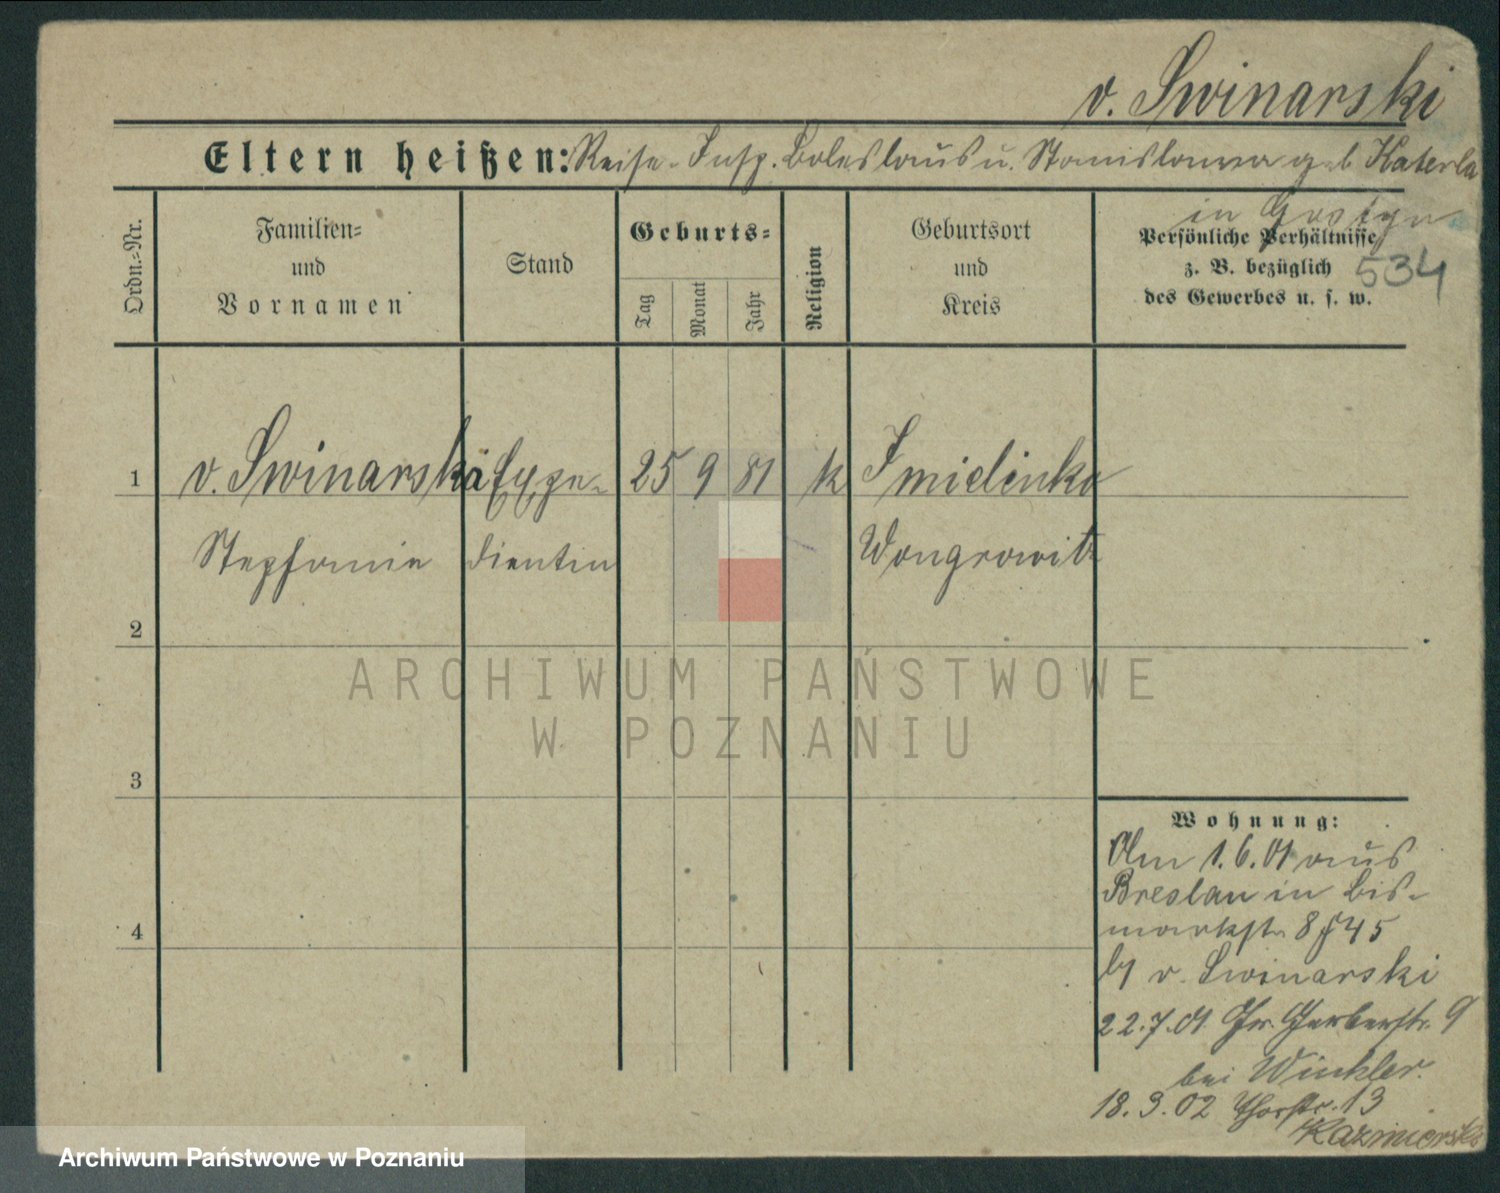 v. Swinarski
Eltern heißen: Reise-Insp. Boleslaus u. Stanislawa geb Katerla
in Gostyn
Ordn.-Nr.
Familien-
und
Vornamen
Stand
Geburts-
Tag
Monat
Jahr
Religion
Geburtsort
und
Kreis
Persönliche Verhältnisse
z. B. bezüglich
des Gewerbes u. s. w.
534
1 v. Swinarska Expe- 25 9 81 k Imielinko
Stephanie dientin Wongrowitz
2
3
4
Wohnung:
Am 1.6.01 aus
Breslau in Bis-
markstr 8
v. Swinarski
22.7.01 Gr. Gerberstr. 9
bei Winkler.
18.3.02 Thorstr. 13
Kazmierski
ARCHIWUM PAŃSTWOWE
W POZNANIU
Archiwum Państwowe w Poznaniu